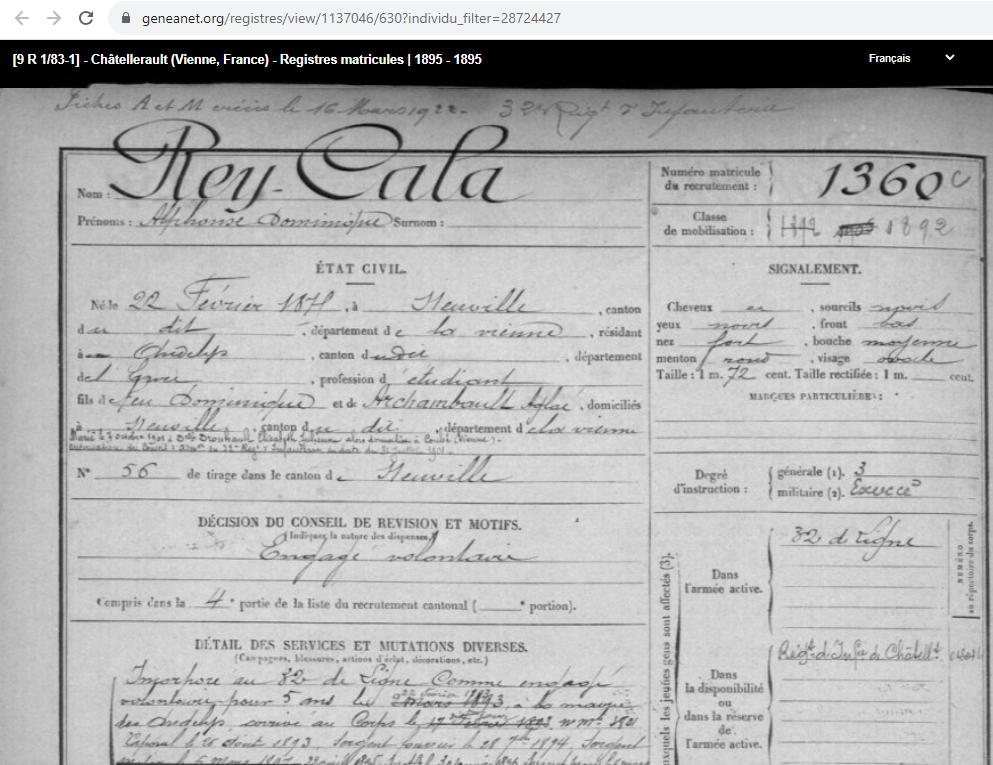 geneanet.org/registres/view/1137046/630?individu_filter=28724427
[9 R 1/83-1] - Châtellerault (Vienne, France) - Registres matricules | 1895 - 1895
Français
Fiches A et M créées le 16 Mars 1922. 32e Régt d'Infanterie
Nom : Rey-Cala
Prénoms : Alphonse Dominique Surnom :
Numéro matricule du recrutement : 1360
Classe de mobilisation : 1892
ÉTAT CIVIL.
Né le 22 Février 187 , à Neuville , canton
du dit , département de la vienne , résidant
à , canton du dit , département
de , profession d' étudiant
fils de feu Dominique et de Archambault Aglaé , domiciliés
à Neuville, canton du dit , département de la vienne
Marié le 7 octobre 1901 à Elisabeth domiciliée à (Vienne).
N° 56 de tirage dans le canton de Neuville
DÉCISION DU CONSEIL DE REVISION ET MOTIFS.
(Indiquer la nature des dispenses.)
Engagé volontaire
Compris dans la 4e partie de la liste du recrutement cantonal ( e portion).
DÉTAIL DES SERVICES ET MUTATIONS DIVERSES.
(Campagnes, blessures, actions d'éclat, décorations, etc.)
Incorporé au 32 de Ligne Comme engagé
volontaire pour 5 ans le 22 février 1893 mars 1893, à la mairie
des arrivé au Corps le 1893 no mle
Caporal le 28 Août 1893, Sergent fourrier le 28 7bre 1894, Sergent
SIGNALEMENT.
Cheveux , sourcils noirs
yeux noirs , front bas
nez fort , bouche moyenne
menton rond , visage ovale
Taille : 1 m. 72 cent. Taille rectifiée : 1 m. cent.
MARQUES PARTICULIÈRES :
Degré d'instruction : générale (1). 3
militaire (2). Exercé
Dans l'armée active. 32 de Ligne
NUMÉRO au répertoire du corps.
Dans la disponibilité ou dans la réserve de l'armée active. Régt d'Infie de Châtellt
auxquels les jeunes gens sont affectés (3).